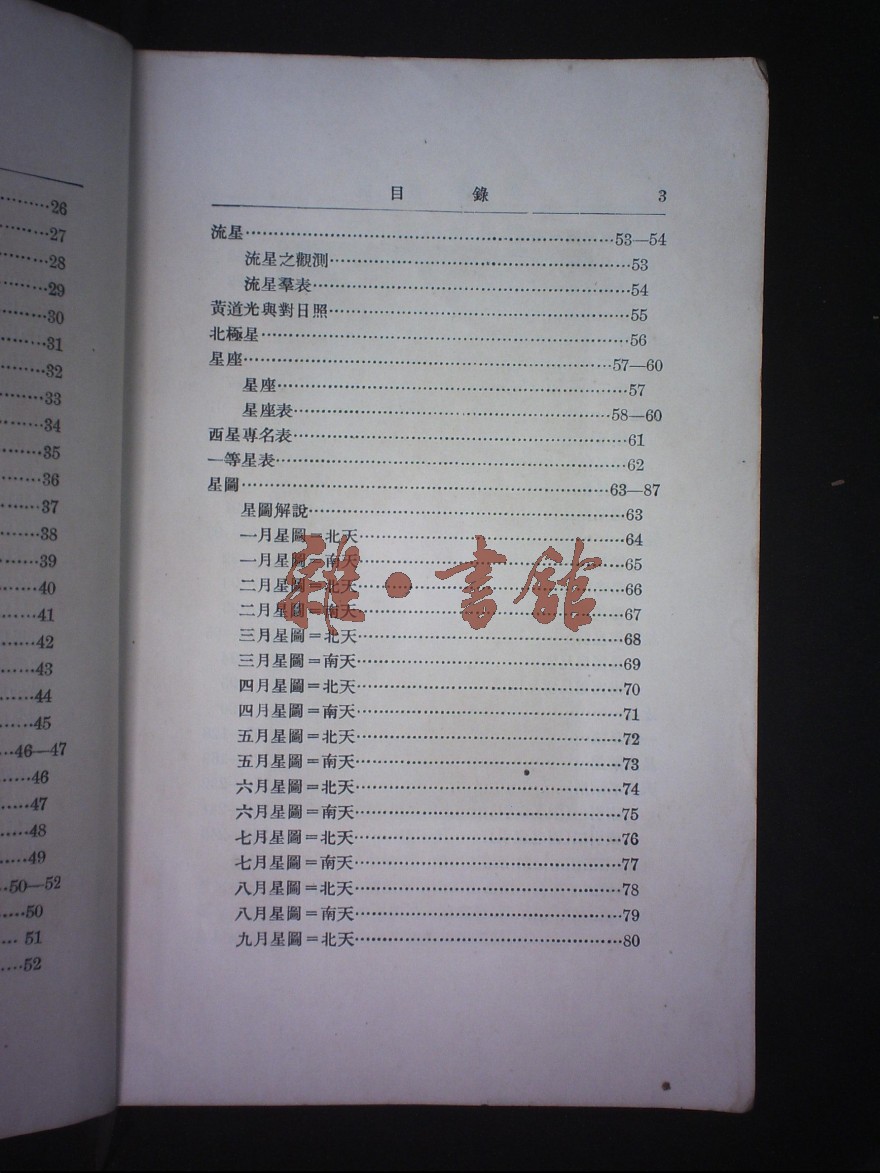 26
27
28
29
30
31
32
33
34
35
36
37
38
39
40
41
42
43
44
45
46—47
46
47
48
49
50—52
50
51
52
目錄 3
流星……53—54
流星之觀測……53
流星羣表……54
黃道光與對日照……55
北極星……56
星座……57—60
星座……57
星座表……58—60
西星專名表……61
一等星表……62
星圖……63—87
星圖解說……63
一月星圖＝北天……64
一月星圖＝南天……65
二月星圖＝北天……66
二月星圖＝南天……67
三月星圖＝北天……68
三月星圖＝南天……69
四月星圖＝北天……70
四月星圖＝南天……71
五月星圖＝北天……72
五月星圖＝南天……73
六月星圖＝北天……74
六月星圖＝南天……75
七月星圖＝北天……76
七月星圖＝南天……77
八月星圖＝北天……78
八月星圖＝南天……79
九月星圖＝北天……80
雜·書館